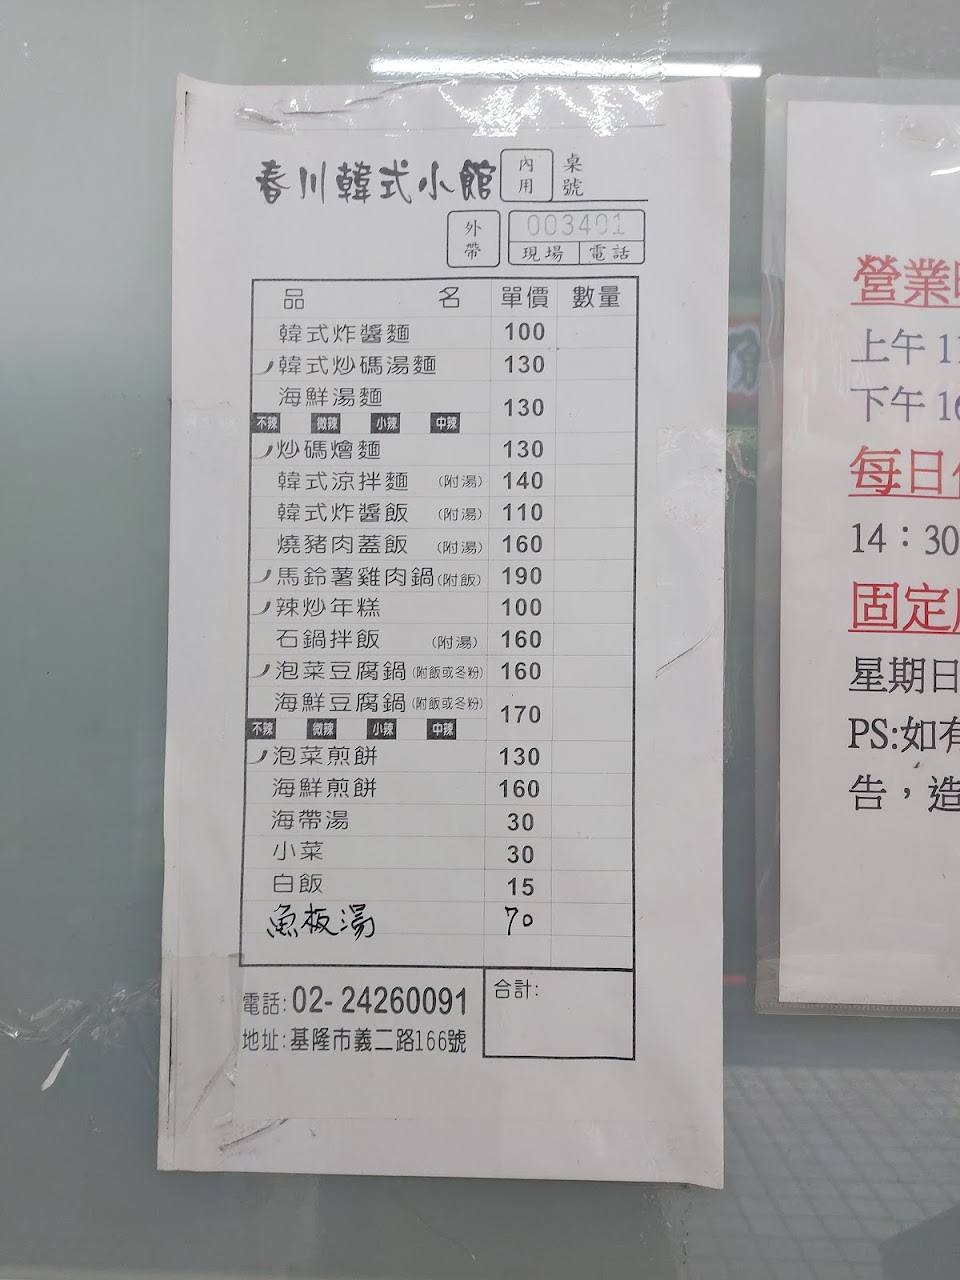 春川韓式小館 內用 桌號
外帶 003401
現場 電話
品名 單價 數量
韓式炸醬麵 100
韓式炒碼湯麵 130
海鮮湯麵 130
不辣 微辣 小辣 中辣
炒碼燴麵 130
韓式涼拌麵 (附湯) 140
韓式炸醬飯 (附湯) 110
燒豬肉蓋飯 (附湯) 160
馬鈴薯雞肉鍋(附飯) 190
辣炒年糕 100
石鍋拌飯 (附湯) 160
泡菜豆腐鍋(附飯或冬粉) 160
海鮮豆腐鍋(附飯或冬粉) 170
不辣 微辣 小辣 中辣
泡菜煎餅 130
海鮮煎餅 160
海帶湯 30
小菜 30
白飯 15
魚板湯 70
合計:
電話: 02- 24260091
地址: 基隆市義二路166號
營業
上午 11
下午 16
每日
14：30
固定
星期日
PS:如有
告，造